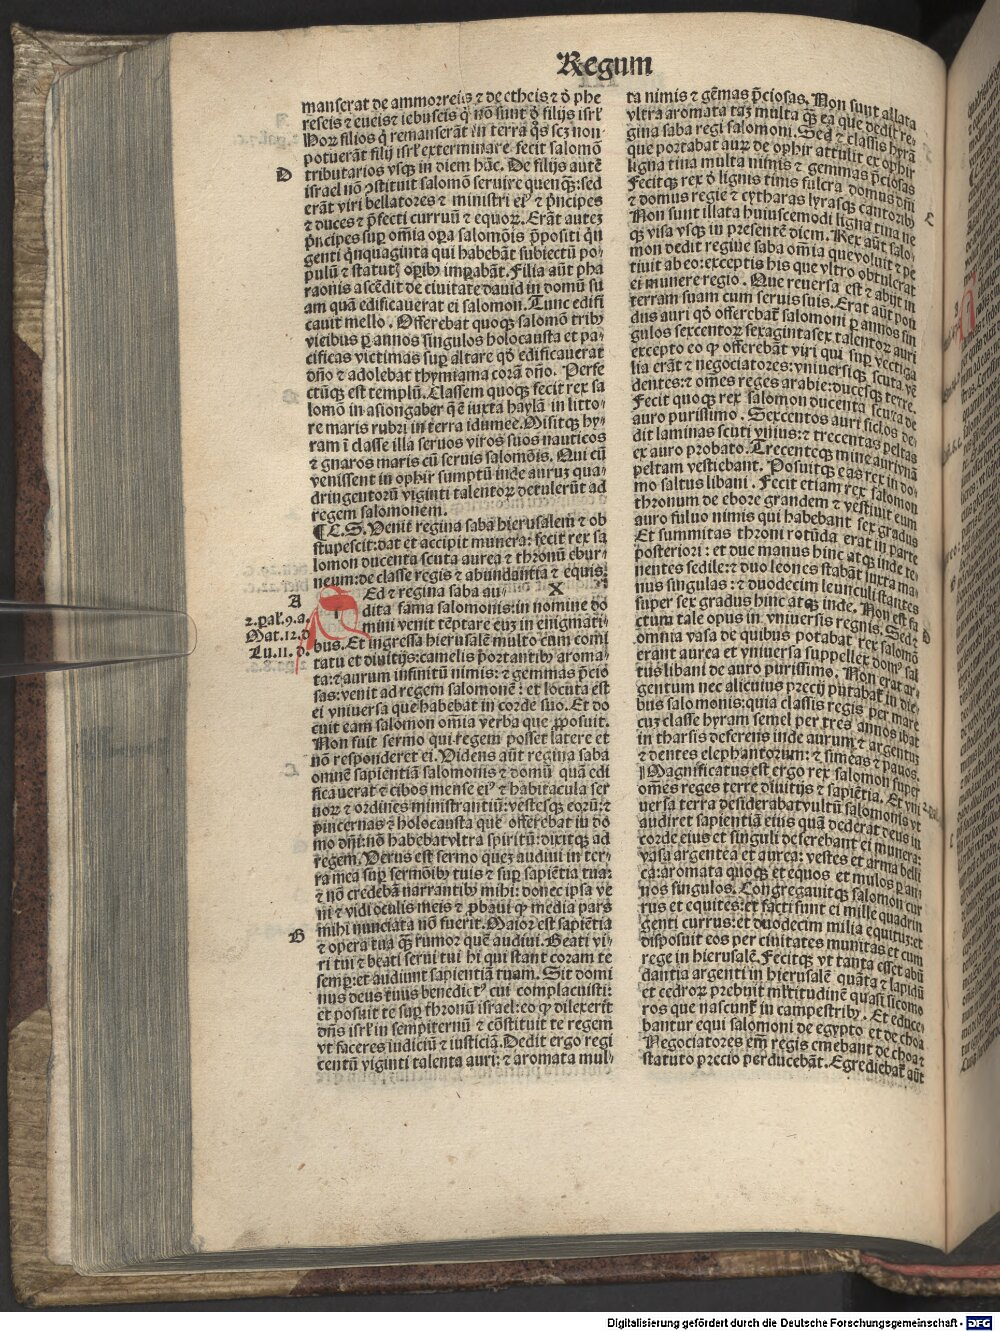 Regum
manserat de ammorreis ⁊ de etheis ⁊ d̓ phe
reseis ⁊ eueis ⁊ iebuseis q̇ nō sunt d̓ filijs isrl̓
Hoꝝ filios q̇ remanserāt in terra q̄s scꝫ non
potuerāt filij isrl̓ exterminare fecit salomō
D
tributarios vsqꝫ in diem hāc. De filijs autē
israel nō ꝯstituit salomō seruire quenqꝫ: sed
erāt viri bellatores ⁊ ministri ei⁹ ⁊ p̄ncipes
⁊ duces ⁊ p̄fecti curruū ⁊ equoꝝ. Erāt auteꝫ
p̄ncipes suꝑ oīa oꝑa salomōis p̄positi q̄n
genti q̄nquaginta qui habebāt subiectū po
pulū ⁊ statut̓ oꝑibꝰ imꝑabāt. Filia aūt pha
raonis ascēdit de ciuitate dauid in domū su
am quā edificauerat ei salomon. Tunc edifi
cauit mello. Offerebat quoqꝫ salomō tribꝰ
vicibus ꝑ annos singulos holocausta et pa
cificas victimas suꝑ altare qd̓ edificauerat
dn̄o ⁊ adolebat thymiama corā dn̄o. Perfe
ctūqꝫ est templū. Classem quoqꝫ fecit rex sa
lomō in asiongaber q̄ ē iuxta haylā in litto⸗
re maris rubri in terra idumee. Misitqꝫ hy⸗
ram ī classe illa seruos viros suos nauticos
⁊ gnaros maris cū seruis salomōis. Qui cū
venissent in ophir sumptū inde auruꝫ qua⸗
dringentorū viginti talentoꝝ detulerūt ad
regem salomonem.
¶ C.S. Venit regina saba hierusalem ⁊ ob
stupescit: dat et accipit munera: fecit rex sa
lomon ducenta scuta aurea ⁊ thronū ebur⸗
neum: de classe regis ⁊ abundantia ⁊ equis.
A
Sed ⁊ regina saba au⸗ X
dita fama salomonis: in nomine do
2. par̓. 9. a.
mini venit tēptare eum in enigmati⸗
Mat. 12. d
bus. Et ingressa hierusalē multo cum comi
Lu. 11. d.
tatu et diuitijs: camelis portantibꝰ aroma⸗
ta: ⁊ aurum infinitū nimis: ⁊ gemmas p̄cio
sas: venit ad regem salomonē: et locuta est
ei vniuersa que habebat in corde suo. Et do
cuit eam salomon om̄ia verba que ꝓposuit.
Non fuit sermo qui regem posset latere et
nō responderet ei. Videns aūt regina saba
omnē sapientiā salomonis ⁊ domū quā edi
ficauerat ⁊ cibos mense ei⁹ ⁊ habitacula ser
uoꝝ ⁊ ordines ministrantiū: vestesqꝫ eorū: ⁊
pincernas ⁊ holocausta que offerebat in do
mo dn̄i: nō habebat vltra spiritū: dixitqꝫ ad
regem. Verus est sermo quem audiui in ter⸗
ra mea suꝑ sermōibꝰ tuis ⁊ suꝑ sapiētia tua:
⁊ nō credebā narrantibꝰ mihi: donec ipsa ve
ni ⁊ vidi oculis meis ⁊ ꝓbaui qꝙ media pars
B
mihi nunciata nō fuerit. Maior est sapiētia
⁊ opera tua qꝫ rumor quē audiui. Beati vi⸗
ri tui ⁊ beati serui tui hi qui stant coram te
semꝑ: et audiunt sapientiā tuam. Sit domi
nus deus tuus benedict⁹ cui complacuisti:
et posuit te suꝑ thronū israel: eo qꝙ dilexerit
dn̄s isrl̓ in sempiternū ⁊ cōstituit te regem
vt faceres iudiciū ⁊ iusticiā. Dedit ergo regi
centū viginti talenta auri: ⁊ aromata mul⸗
ta nimis ⁊ gēmas p̄ciosas. Non sunt allata
vltra aromata tam multa qꝫ ea que dedit re⸗
gina saba regi salomoni. Sed ⁊ classis hyrā
que portabat auꝝ de ophir attulit ex ophir
ligna tina multa nimis ⁊ gemmas p̄ciosas
Fecitqꝫ rex d̓ lignis tinis fulcra domus dn̄i
⁊ domus regie ⁊ cytharas lyrasqꝫ cantoribꝰ
C
Non sunt illata huiuscemodi ligna tina ne
qꝫ visa vsqꝫ in presentē diem. Rex aūt salo⸗
mon dedit regine saba om̄ia que voluit ⁊ pe
tiuit ab eo: exceptis his que vltro obtulerat
ei munere regio. Que reuersa est ⁊ abijt in
terram suam cum seruis suis. Erat aūt pon
dus auri qd̓ offerebat̓ salomoni ꝑ annos sin
gulos sexcentoꝝ sexagintasex talentoꝝ auri
excepto eo qꝙ offerebāt viri qui suꝑ vectiga
lia erāt ⁊ negociatores: vniuersiqꝫ scuta vē
dentes: ⁊ om̄es reges arabie: ducesqꝫ terre.
Fecit quoqꝫ rex salomon ducenta scuta de
auro purissimo. Sexcentos auri siclos de⸗
dit laminas scuti vnius: ⁊ trecentas peltas
ex auro probato. Trecenteqꝫ mine auri vnā
peltam vestiebant. Posuitqꝫ eas rex in do⸗
mo saltus libani. Fecit etiam rex salomon
thronum de ebore grandem ⁊ vestiuit eum
auro fuluo nimis qui habebant sex gradus
Et summitas throni rotūda erat in parte
posteriori: et due manus hinc atqꝫ inde te⸗
nentes sedile: ⁊ duo leones stabāt iuxta ma⸗
nus singulas: ⁊ duodecim leunculi stantes
super sex gradus hinc atqꝫ inde. Non est fa
D
ctum tale opus in vniuersis regnis. Sed ⁊
omnia vasa de quibus potabat rex salomō
erant aurea et vniuersa suppellex dom⁹ sal
tus libani de auro purissimo. Non erat ar⸗
gentum nec alicuius precij putabat̓ in die⸗
bus salomonis: quia classis regis per mare
cum classe hyram semel per tres annos ibat
in tharsis deferens inde aurum ⁊ argentum
⁊ dentes elephantorum: ⁊ simeas ⁊ pauos.
Magnificatus est ergo rex salomon super
om̄es reges terre diuitijs ⁊ sapiētia. Et vni
uersa terra desiderabat vultū salomonis vt
audiret sapientiā eius quā dederat deus in
corde eius et singuli deferebant ei munera:
vasa argentea et aurea: vestes et arma belli
ca: aromata quoqꝫ et equos et mulos ꝑ an⸗
nos singulos. Congregauitqꝫ salomon cur
rus et equites: et facti sunt ei mille quadrin
genti currus: et duodecim milia equitum: et
disposuit eos per ciuitates munitas et cum
rege in hierusalē. Fecitqꝫ vt tanta esset abū
dantia argenti in hierusalē quāta ⁊ lapidū
et cedroꝝ prebuit ml̓titudinē quasi sicomo
ros que nascunt̓ in campestribꝰ. Et educe⸗
bantur equi salomoni de egypto et de choa
Negociatores em̄ regis emebant de choa ⁊
statuto precio perducebāt. Egrediebat̓ aūt
Digitalisierung gefördert durch die Deutsche Forschungsgemeinschaft - DFG